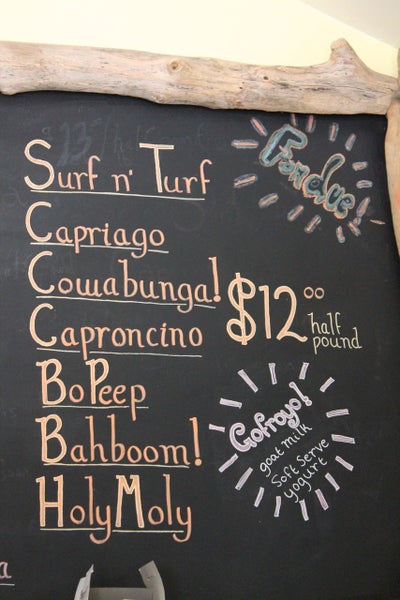 Surf n' Turf
Capriago
Cowabunga!
Caproncino
BoPeep
Bahboom!
HolyMoly
Fondue!
$12.00
half
pound
Gofroyo!
goat milk
Soft Serve
yogurt